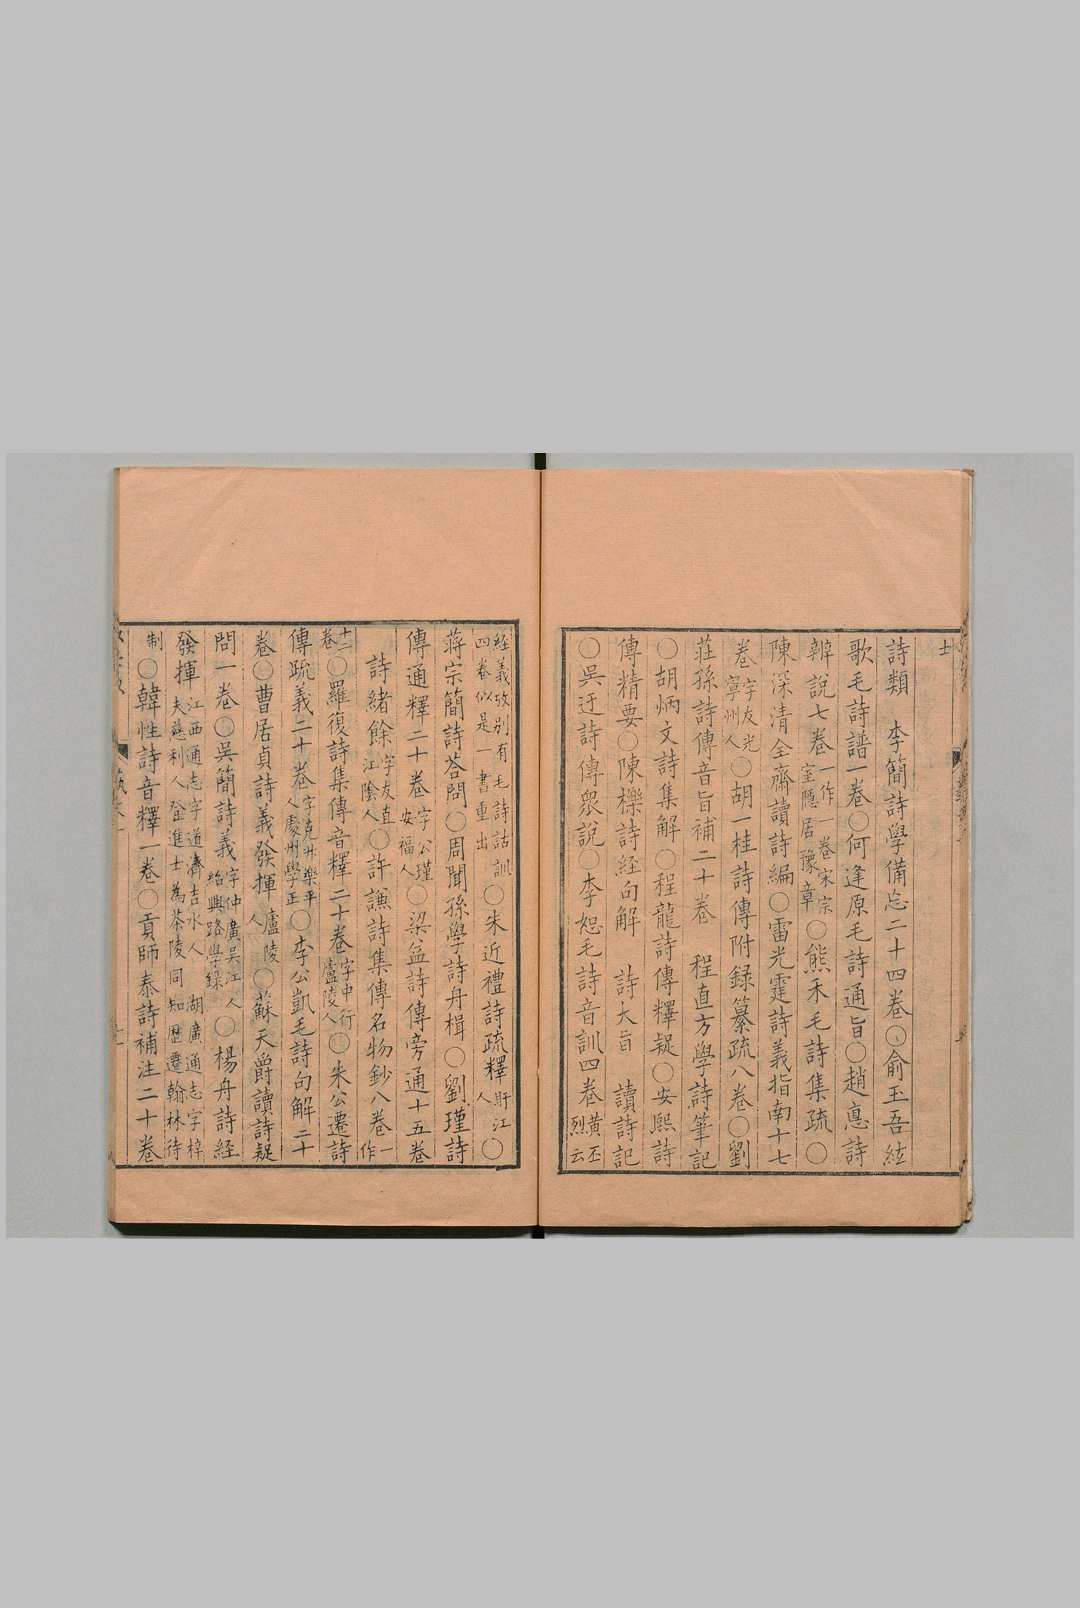 士
詩類　李簡詩學備忘二十四卷○俞玉吾絃
歌毛詩譜一卷○何逢原毛詩通旨○趙悳詩
辨說七卷一作一卷宋宗室隱居豫章○熊禾毛詩集疏○
陳深清全齋讀詩編○雷光霆詩義指南十七
卷字友光寧州人○胡一桂詩傳附録纂疏八卷○劉
莊孫詩傳音旨補二十卷　程直方學詩筆記
○胡炳文詩集解○程龍詩傳釋疑○安熙詩
傳精要○陳櫟詩經句解　詩大旨　讀詩記
○吳迂詩傳衆說○李恕毛詩音訓四卷黃丕烈云
經義攷別有毛詩詁訓四卷似是一書重出○朱近禮詩疏釋盱江人○
蔣宗簡詩荅問○周聞孫學詩舟楫○劉瑾詩
傳通釋二十卷字公瑾安福人○梁益詩傳旁通十五卷
詩緒餘字友直江陰人○許謙詩集傳名物鈔八卷一作
十二卷○羅復詩集傳音釋二十卷字中行廬陵人○朱公遷詩
傳疏義二十卷字克升樂平人處州學正○李公凱毛詩句解二十
卷○曹居貞詩義發揮廬陵人○蘇天爵讀詩疑
問一卷○吳簡詩義字仲廣吳江人紹興路學録○楊舟詩經
發揮江西通志字道濟吉水人　湖廣通志字梓夫慈利人登進士為茶陵同知歷遷翰林待
制○韓性詩音釋一卷○貢師泰詩補注二十卷